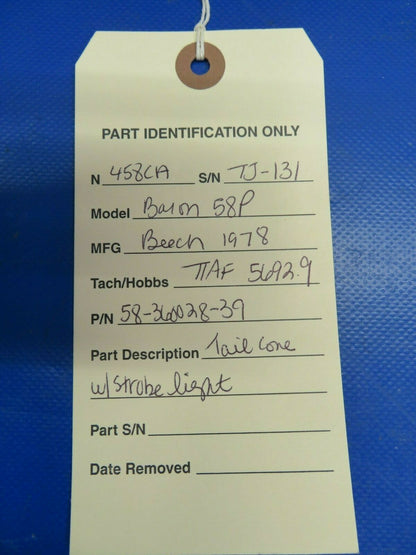 PART IDENTIFICATION ONLY
N 458CA S/N TJ-131
Model Baron 58P
MFG Beech 1978
Tach/Hobbs TTAF 5692.9
P/N 58-360028-39
Part Description Tail cone
w/strobe light
Part S/N
Date Removed